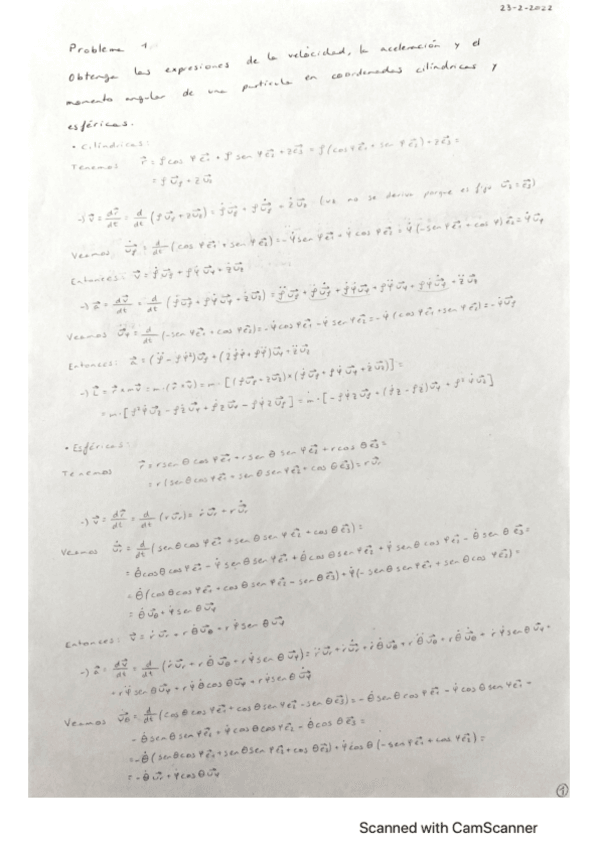 23-2-2022
Problema 1.
Obtenga las expresiones de la velocidad, la aceleración y el
momento angular de una partícula en coordenadas cilíndricas y
esféricas.
• Cilíndricas:
Tenemos r⃗ = ρ cos φ e⃗₁ + ρ sen φ e⃗₂ + z e⃗₃ = ρ (cos φ e⃗₁ + sen φ e⃗₂) + z e⃗₃ =
= ρ u⃗ρ + z u⃗z
-) v⃗ = dr⃗/dt = d/dt (ρ u⃗ρ + z u⃗z) = ρ̇ u⃗ρ + ρ u⃗̇ρ + ż u⃗z (uz no se deriva porque es fijo u⃗z = e⃗₃)
Veamos u⃗̇ρ = d/dt (cos φ e⃗₁ + sen φ e⃗₂) = -φ̇ sen φ e⃗₁ + φ̇ cos φ e⃗₂ = φ̇ (-sen φ e⃗₁ + cos φ e⃗₂) = φ̇ u⃗φ
Entonces: v⃗ = ρ̇ u⃗ρ + ρ φ̇ u⃗φ + ż u⃗z
-) a⃗ = dv⃗/dt = d/dt (ρ̇ u⃗ρ + ρ φ̇ u⃗φ + ż u⃗z) = ρ̈ u⃗ρ + ρ̇ u⃗̇ρ + ρ̇ φ̇ u⃗φ + ρ φ̈ u⃗φ + ρ φ̇ u⃗̇φ + z̈ u⃗z
Veamos u⃗̇φ = d/dt (-sen φ e⃗₁ + cos φ e⃗₂) = -φ̇ cos φ e⃗₁ - φ̇ sen φ e⃗₂ = -φ̇ (cos φ e⃗₁ + sen φ e⃗₂) = -φ̇ u⃗ρ
Entonces: a⃗ = (ρ̈ - ρ φ̇²) u⃗ρ + (2ρ̇ φ̇ + ρ φ̈) u⃗φ + z̈ u⃗z
-) L⃗ = r⃗ × m v⃗ = m · (r⃗ × v⃗) = m · [(ρ u⃗ρ + z u⃗z) × (ρ̇ u⃗ρ + ρ φ̇ u⃗φ + ż u⃗z)] =
= m · [ρ² φ̇ u⃗z - ρ ż u⃗φ + ρ̇ z u⃗φ - ρ φ̇ z u⃗ρ] = m · [-ρ φ̇ z u⃗ρ + (ρ̇ z - ρ ż) u⃗φ + ρ² φ̇ u⃗z]
• Esféricas:
Tenemos r⃗ = r sen θ cos φ e⃗₁ + r sen θ sen φ e⃗₂ + r cos θ e⃗₃ =
= r (sen θ cos φ e⃗₁ + sen θ sen φ e⃗₂ + cos θ e⃗₃) = r u⃗r
-) v⃗ = dr⃗/dt = d/dt (r u⃗r) = ṙ u⃗r + r u⃗̇r
Veamos u⃗̇r = d/dt (sen θ cos φ e⃗₁ + sen θ sen φ e⃗₂ + cos θ e⃗₃) =
= θ̇ cos θ cos φ e⃗₁ - φ̇ sen θ sen φ e⃗₁ + θ̇ cos θ sen φ e⃗₂ + φ̇ sen θ cos φ e⃗₂ - θ̇ sen θ e⃗₃ =
= θ̇ (cos θ cos φ e⃗₁ + cos θ sen φ e⃗₂ - sen θ e⃗₃) + φ̇ (-sen θ sen φ e⃗₁ + sen θ cos φ e⃗₂) =
= θ̇ u⃗θ + φ̇ sen θ u⃗φ
Entonces: v⃗ = ṙ u⃗r + r θ̇ u⃗θ + r φ̇ sen θ u⃗φ
-) a⃗ = dv⃗/dt = d/dt (ṙ u⃗r + r θ̇ u⃗θ + r φ̇ sen θ u⃗φ) = r̈ u⃗r + ṙ u⃗̇r + ṙ θ̇ u⃗θ + r θ̈ u⃗θ + r θ̇ u⃗̇θ + ṙ φ̇ sen θ u⃗φ +
+ r φ̈ sen θ u⃗φ + r φ̇ θ̇ cos θ u⃗φ + r φ̇ sen θ u⃗̇φ
Veamos u⃗̇θ = d/dt (cos θ cos φ e⃗₁ + cos θ sen φ e⃗₂ - sen θ e⃗₃) = -θ̇ sen θ cos φ e⃗₁ - φ̇ cos θ sen φ e⃗₁ -
- θ̇ sen θ sen φ e⃗₂ + φ̇ cos θ cos φ e⃗₂ - θ̇ cos θ e⃗₃ =
= -θ̇ (sen θ cos φ e⃗₁ + sen θ sen φ e⃗₂ + cos θ e⃗₃) + φ̇ cos θ (-sen φ e⃗₁ + cos φ e⃗₂) =
= -θ̇ u⃗r + φ̇ cos θ u⃗φ
1
Scanned with CamScanner